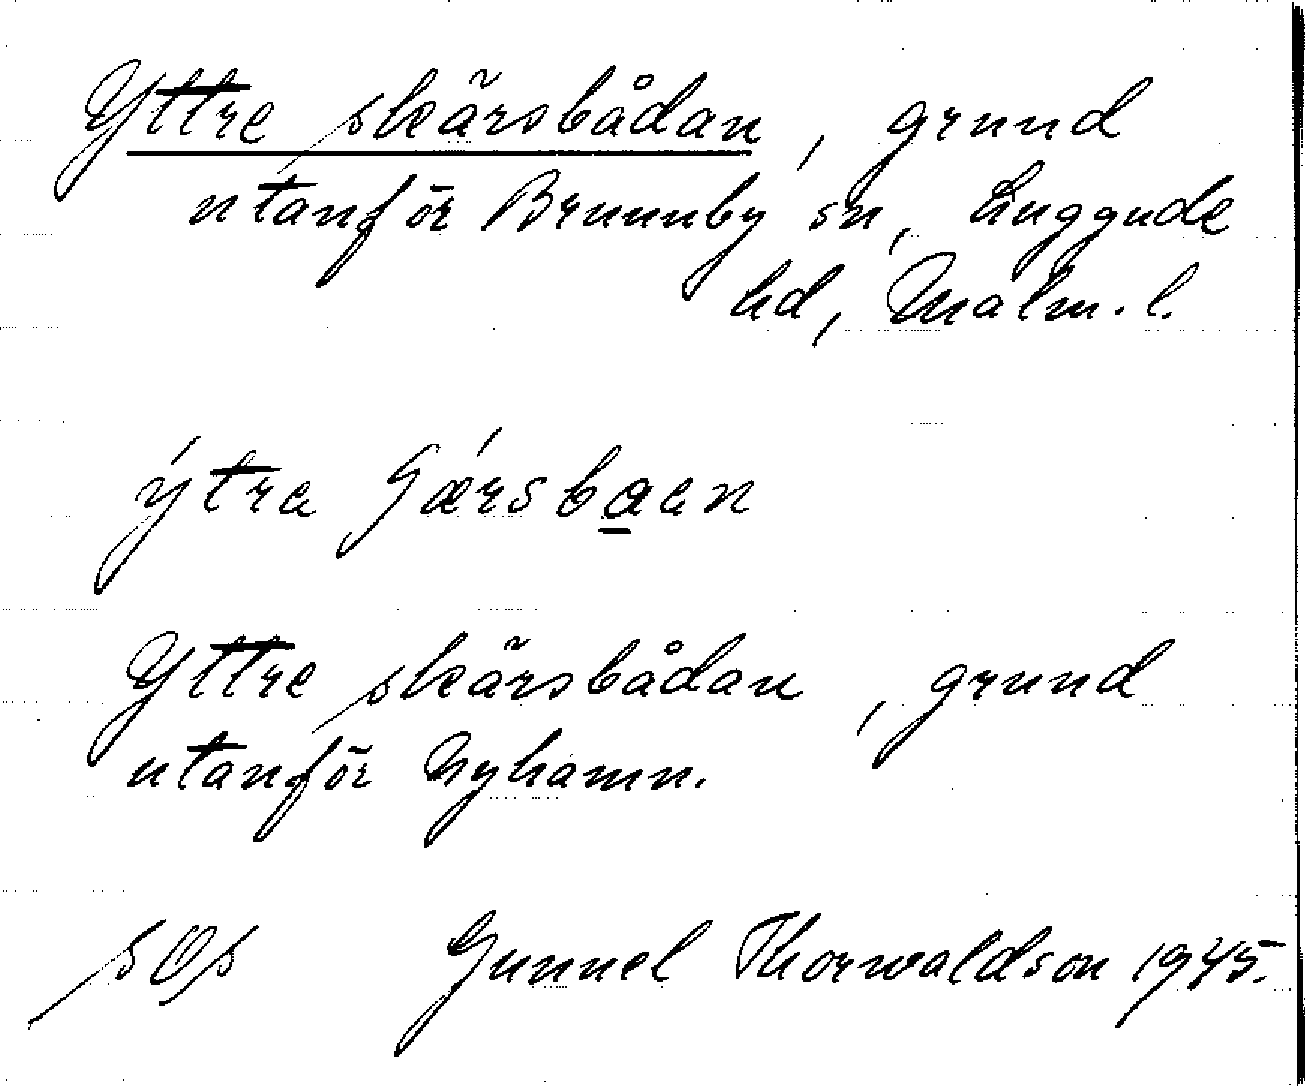 Yttre skärsbådan, grund
utanför Brunnby sn, Luggude
hd, Malm. l.
Yttre skärsbådan, grund
utanför Nyhamn.
Gunnel Thorwaldson 1945.